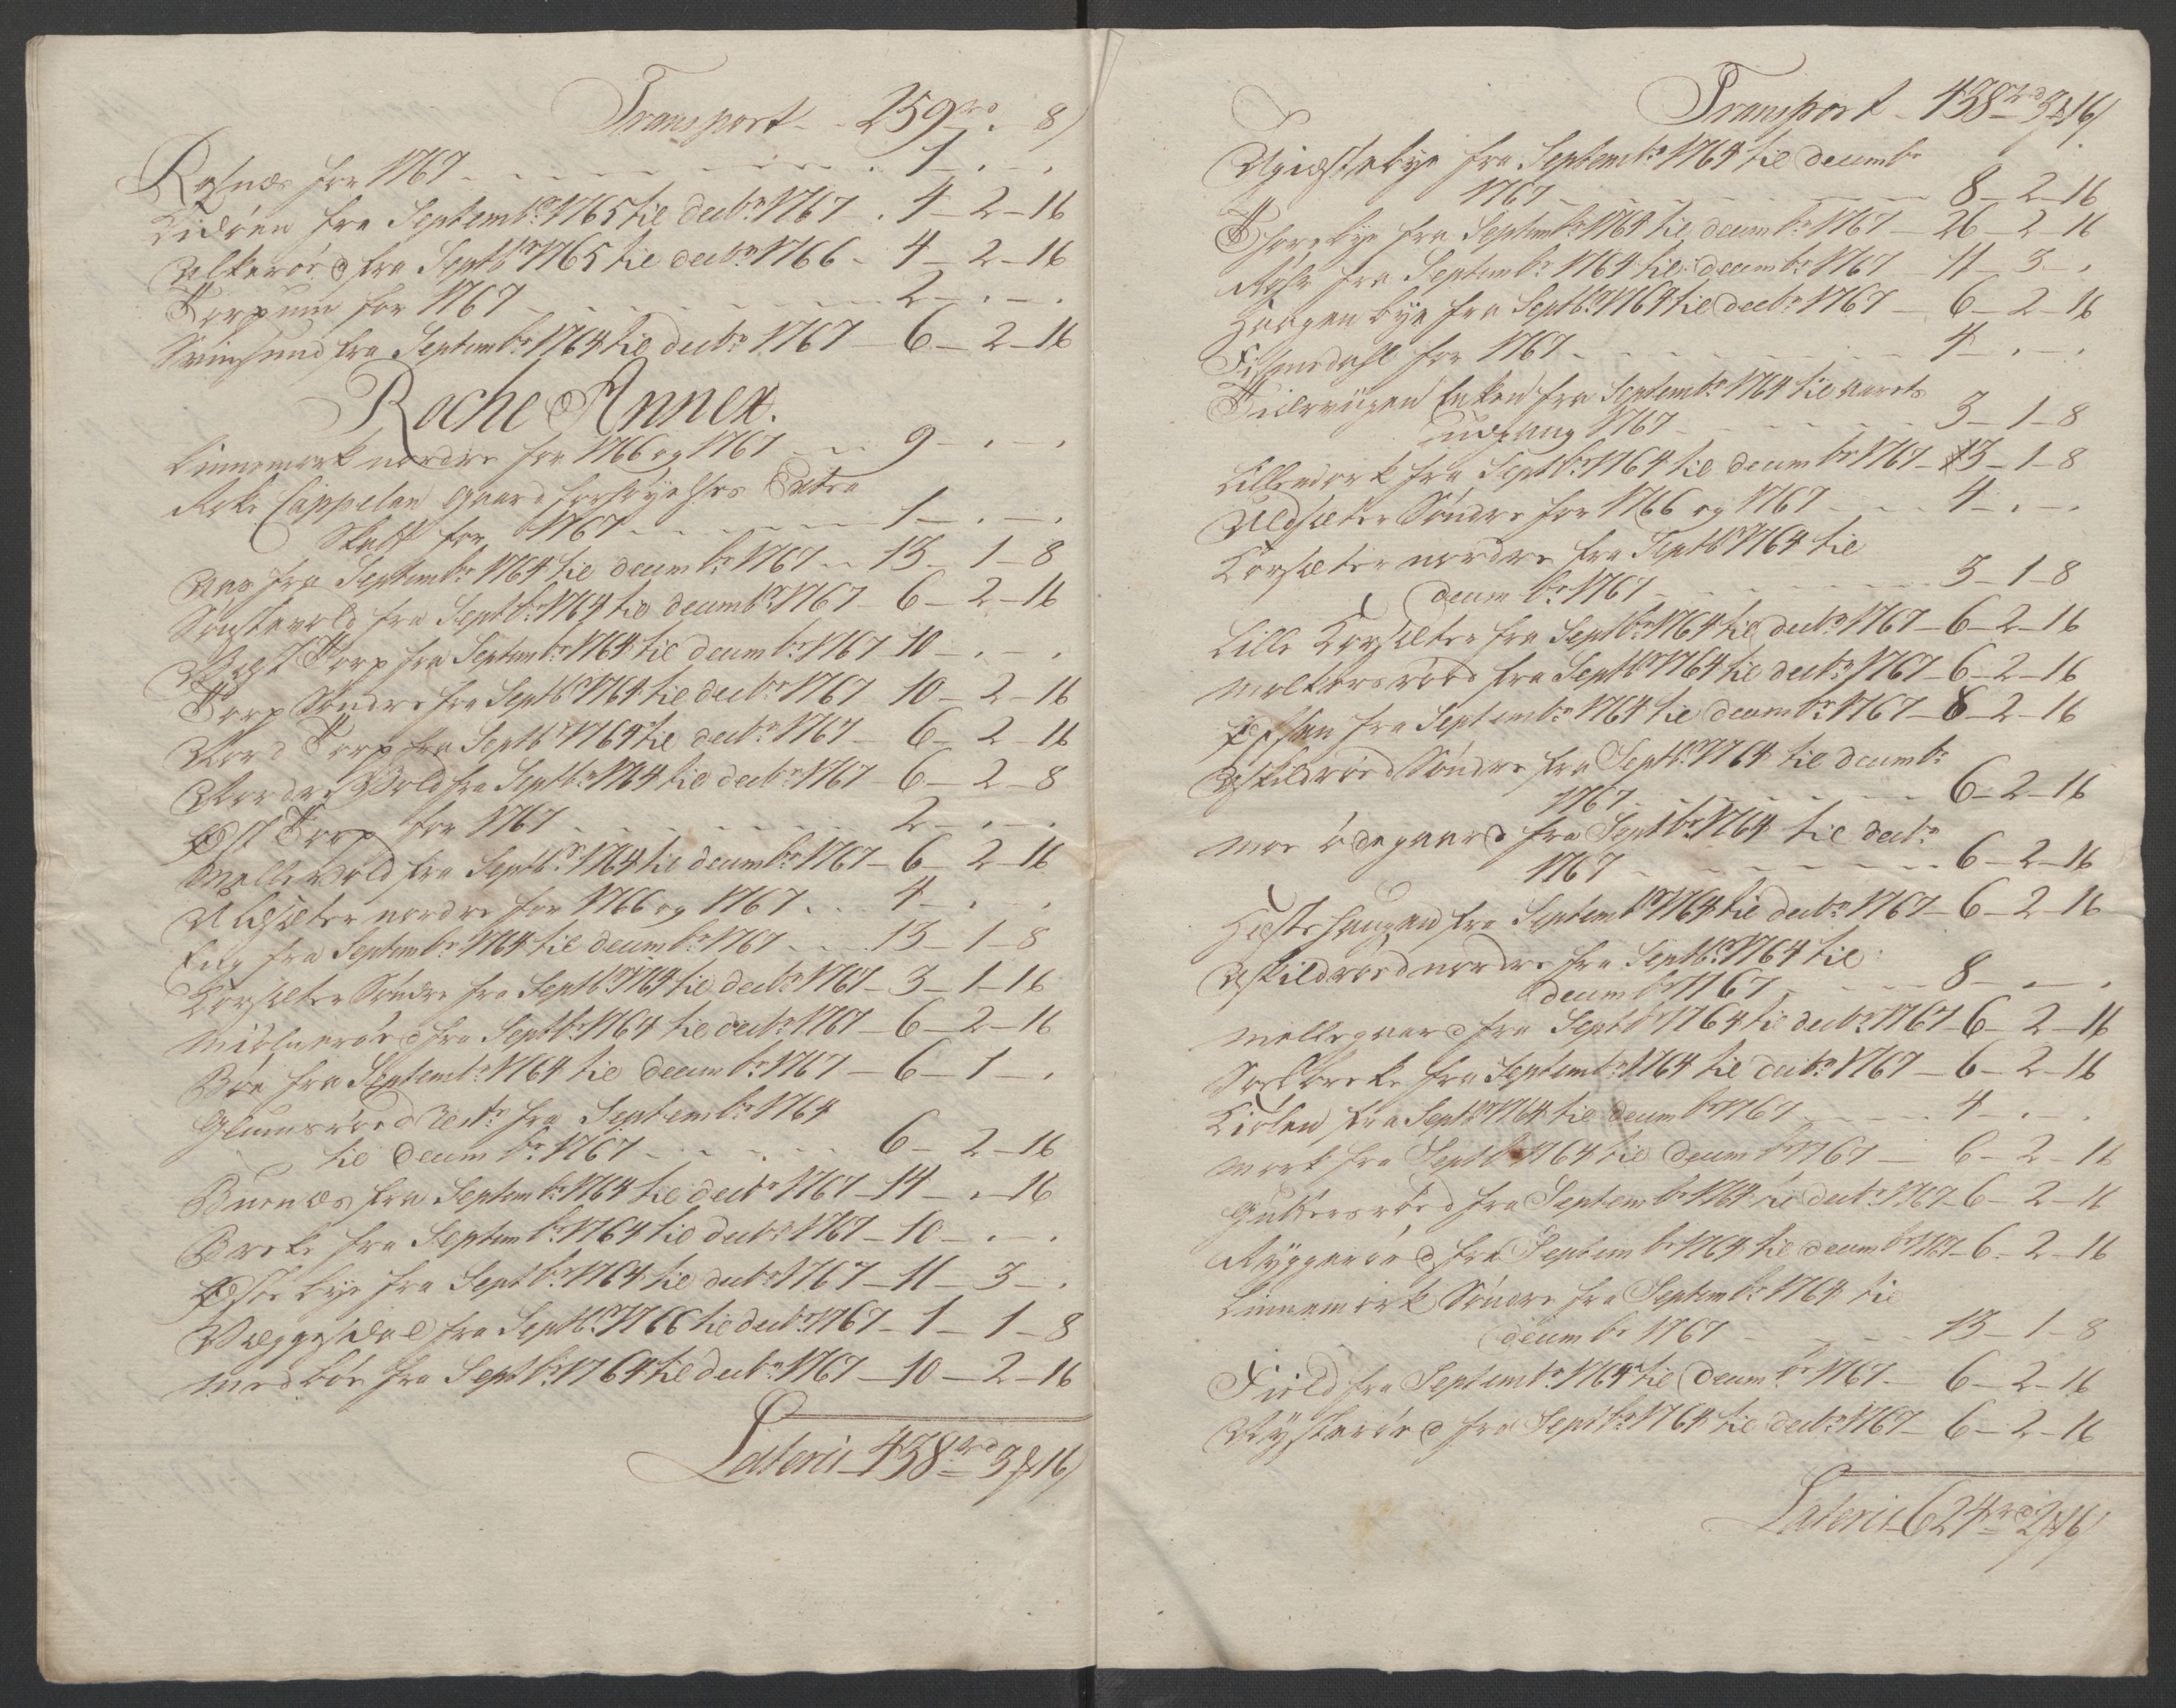 Transport - - 259 rd . - 8 /
Rosnæs for 1767 - - - - 1 - . - .
Kidöen fra Septembr 1765 til decbr 1767 - . 4 - 2 - 16
Ulkeröed fra Septbr 1765 til decbr 1766 - 4 - 2 - 16
Torpum for 1767 - - - - 2 - . - .
Svinesund fra Septembr 1764 til decbr 1767 - 6 - 2 - 16
Roche Annex.
Linnemark nordre for 1766 og 1767 - - 9 - . - .
Roke Cappelan Gaard Extra
Skatt for 1767 - - - - 1 - . - .
Aas fra Septembr 1764 til decembr 1767 - - 13 - 1 - 8
fra Septbr 1764 til decembr 1767 - 6 - 2 - 16
Vest Torp fra Septembr 1764 til decembr 1767 10 - . - .
Torp Söndre fra Septbr 1764 til decbr 1767 10 - 2 - 16
Nord Torp fra Septbr 1764 til decbr 1767 - 6 - 2 - 16
Nordre Vold fra Septbr 1764 til decbr 1767 - 6 - 2 - 8
Öst Torp for 1767 - - - - 2 - . - .
Melle Vold fra Septbr 1764 til decembr 1767 - 6 - 2 - 16
nordre for 1766 og 1767 . . 4 - . .
Eng fra Septembr 1764 til decembr 1767 - - 13 - 1 - 8
Korsæter Söndre fra Septbr 1764 til decbr 1767 - 3 - 1 - 16
fra Septbr 1764 til decbr 1767 - 6 - 2 - 16
Böe fra Septembr 1764 til decembr 1767 - 6 - 1 - .
Glumsröed fra Septembr 1764
til decembr 1767 - - - - 6 - 2 - 16
Buenæs fra Septembr 1764 til decbr 1767 - 14 - . - 16
Breke fra Septembr 1764 til decbr 1767 - 10 - . - .
bye fra Septbr 1764 til decbr 1767 - 11 - 3 - .
fra Septbr 1766 til decbr 1767 - 1 - 1 - 8
Medböe fra Septbr 1764 til decbr 1767 - 10 - 2 - 16
Lateris - 438 rd 3 # 16 /
Transport - 438 rd 3 # 16 /
fra Septembr 1764 til decembr
1767 - - - - 8 - 2 - 16
Thorebye fra Septembr 1764 til decembr 1767 - 26 - 2 - 16
Röhr fra Septembr 1764 til decembr 1767 - 11 - 3 - .
Haagenbye fra Septbr 1764 til decbr 1767 - 6 - 2 - 16
for 1767 - - - - 4 - . - .
Enken fra Septembr 1764 til aarets
udgang 1767 - - - - 3 - 1 - 8
Lillemark fra Septbr 1764 til decembr 1767 - 3 - 1 - 8
Söndre for 1766 og 1767 - - 4 - . - .
Korsæter nordre fra Septbr 1764 til
decembr 1767 - - - - 3 - 1 - 8
Lille Korsæter fra Septbr 1764 til decbr 1767 - 6 - 2 - 16
fra Septbr 1764 til decbr 1767 - 6 - 2 - 16
fra Septembr 1764 til decembr 1767 - 8 - 2 - 16
Askildröed Söndre fra Septbr 1764 til decembr
1767 - - - - 6 - 2 - 16
Moe ödegaard fra Septbr 1764 til decbr
1767 - - - - 6 - 2 - 16
fra Septembr 1764 til decbr 1767 - 6 - 2 - 16
Askildröed nordre fra Septbr 1764 til
decembr 1767 - - - - 8 - . - .
Mellegaard fra Septbr 1764 til decbr 1767 - 6 - 2 - 16
fra Septembr 1764 til decbr 1767 - 6 - 2 - 16
fra Septbr 1764 til decembr 1767 - - 4 - . - .
Mork fra Septbr 1764 til decembr 1767 - 6 - 2 - 16
Guttersröed fra Septembr 1764 til decbr 1767 - 6 - 2 - 16
Ryggeröed fra Septembr 1764 til decembr 1767 - 6 - 2 - 16
Linnemark Söndre fra Septembr 1764 til
decembr 1767 - - - - 13 - 1 - 8
Field fra Septembr 1764 til decembr 1767 - 6 - 2 - 16
fra Septbr 1764 til decbr 1767 - 6 - 2 - 16
Lateris - 624 rd 2 # 16 /